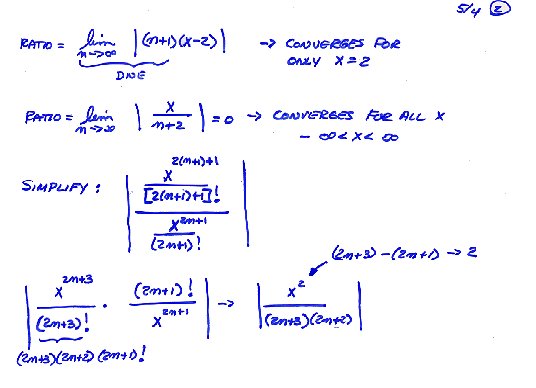 5/4 ②
RATIO = lim n→∞ |(n+1)(x-2)| → CONVERGES FOR
DNE ONLY X=2
RATIO = lim n→∞ | x/(n+2) | = 0 → CONVERGES FOR ALL X
- ∞ < X < ∞
SIMPLIFY : | (x^(2(n+1)+1) / [2(n+1)+1]!) / (x^(2n+1) / (2n+1)!) |
(2n+3) - (2n+1) → 2
| x^(2n+3) / (2n+3)! · (2n+1)! / x^(2n+1) | → | x^2 / (2n+3)(2n+2) |
(2n+3)(2n+2)(2n+1)!